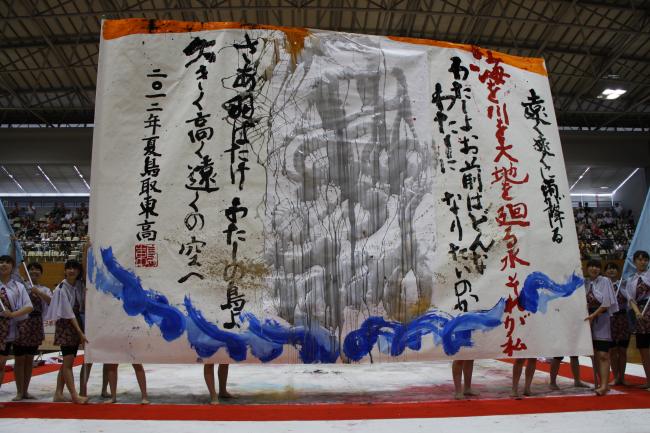 遠く 雨降る
海を川を大地を廻る水それが私
わたしよお前はどんな
わたしになりたいのか
さあ羽ばたけわたしの鳥よ
大きく高く遠くの空へ
二〇一二年夏鳥取東高